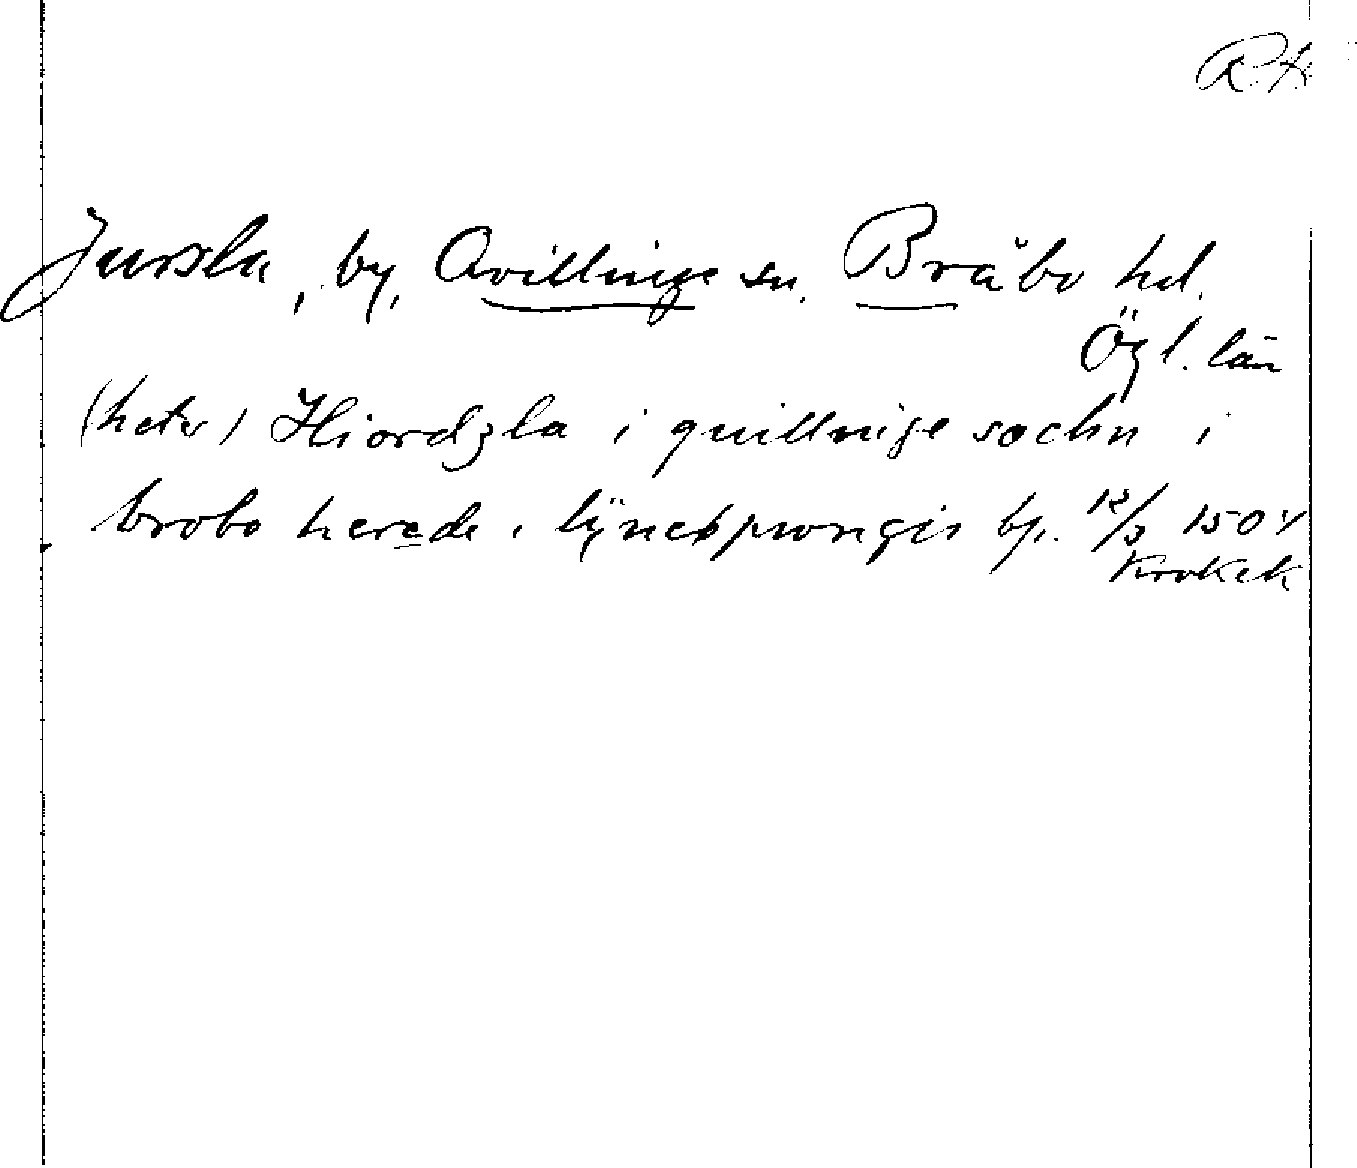 R.H.
Jursla, by, Qvillinge sn. Bråbo hd.
Ögl. län
(heter) Hiordzla i quillnige sochn i
brobo herede i lÿncøpungis bp. 12/3 1504
Krokek